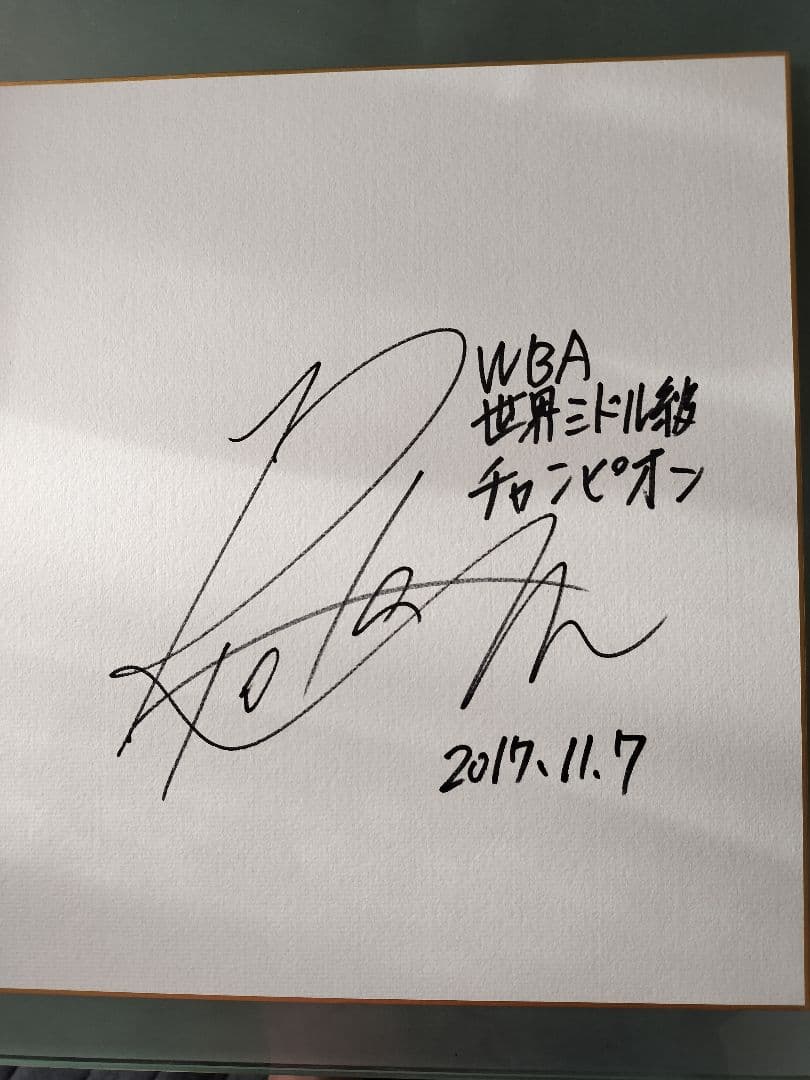 WBA
世界ミドル級
チャンピオン
2017.11.7